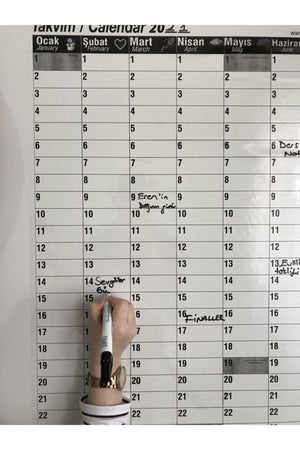 Takvim / Calendar 2021
Ocak Şubat Mart Nisan Mayıs Haziran
January February March April May June
1 1 1 1 1 1
2 2 2 2 2 2
3 3 3 3 3 3
4 4 4 4 4 4
5 5 5 5 5 5
6 6 6 6 6 6 Ders
7 7 7 7 7 7
8 8 8 8 8 8
9 9 9 Eren'in 9 9 9
Doğum günü
10 10 10 10 10 10
11 11 11 11 11 11
12 12 12 12 12 12
13 13 13 13 13 13
14 14 Sevgililer 14 14 14 14
15 15 15 15 15 15
16 16 16 FİNALLER 16 16
17 17 17 17 17 17
18 18 18 18 18
19 19 19 19 19
20 20 20 20 20 20
21 21 21 21 21
22 22 22 22 22